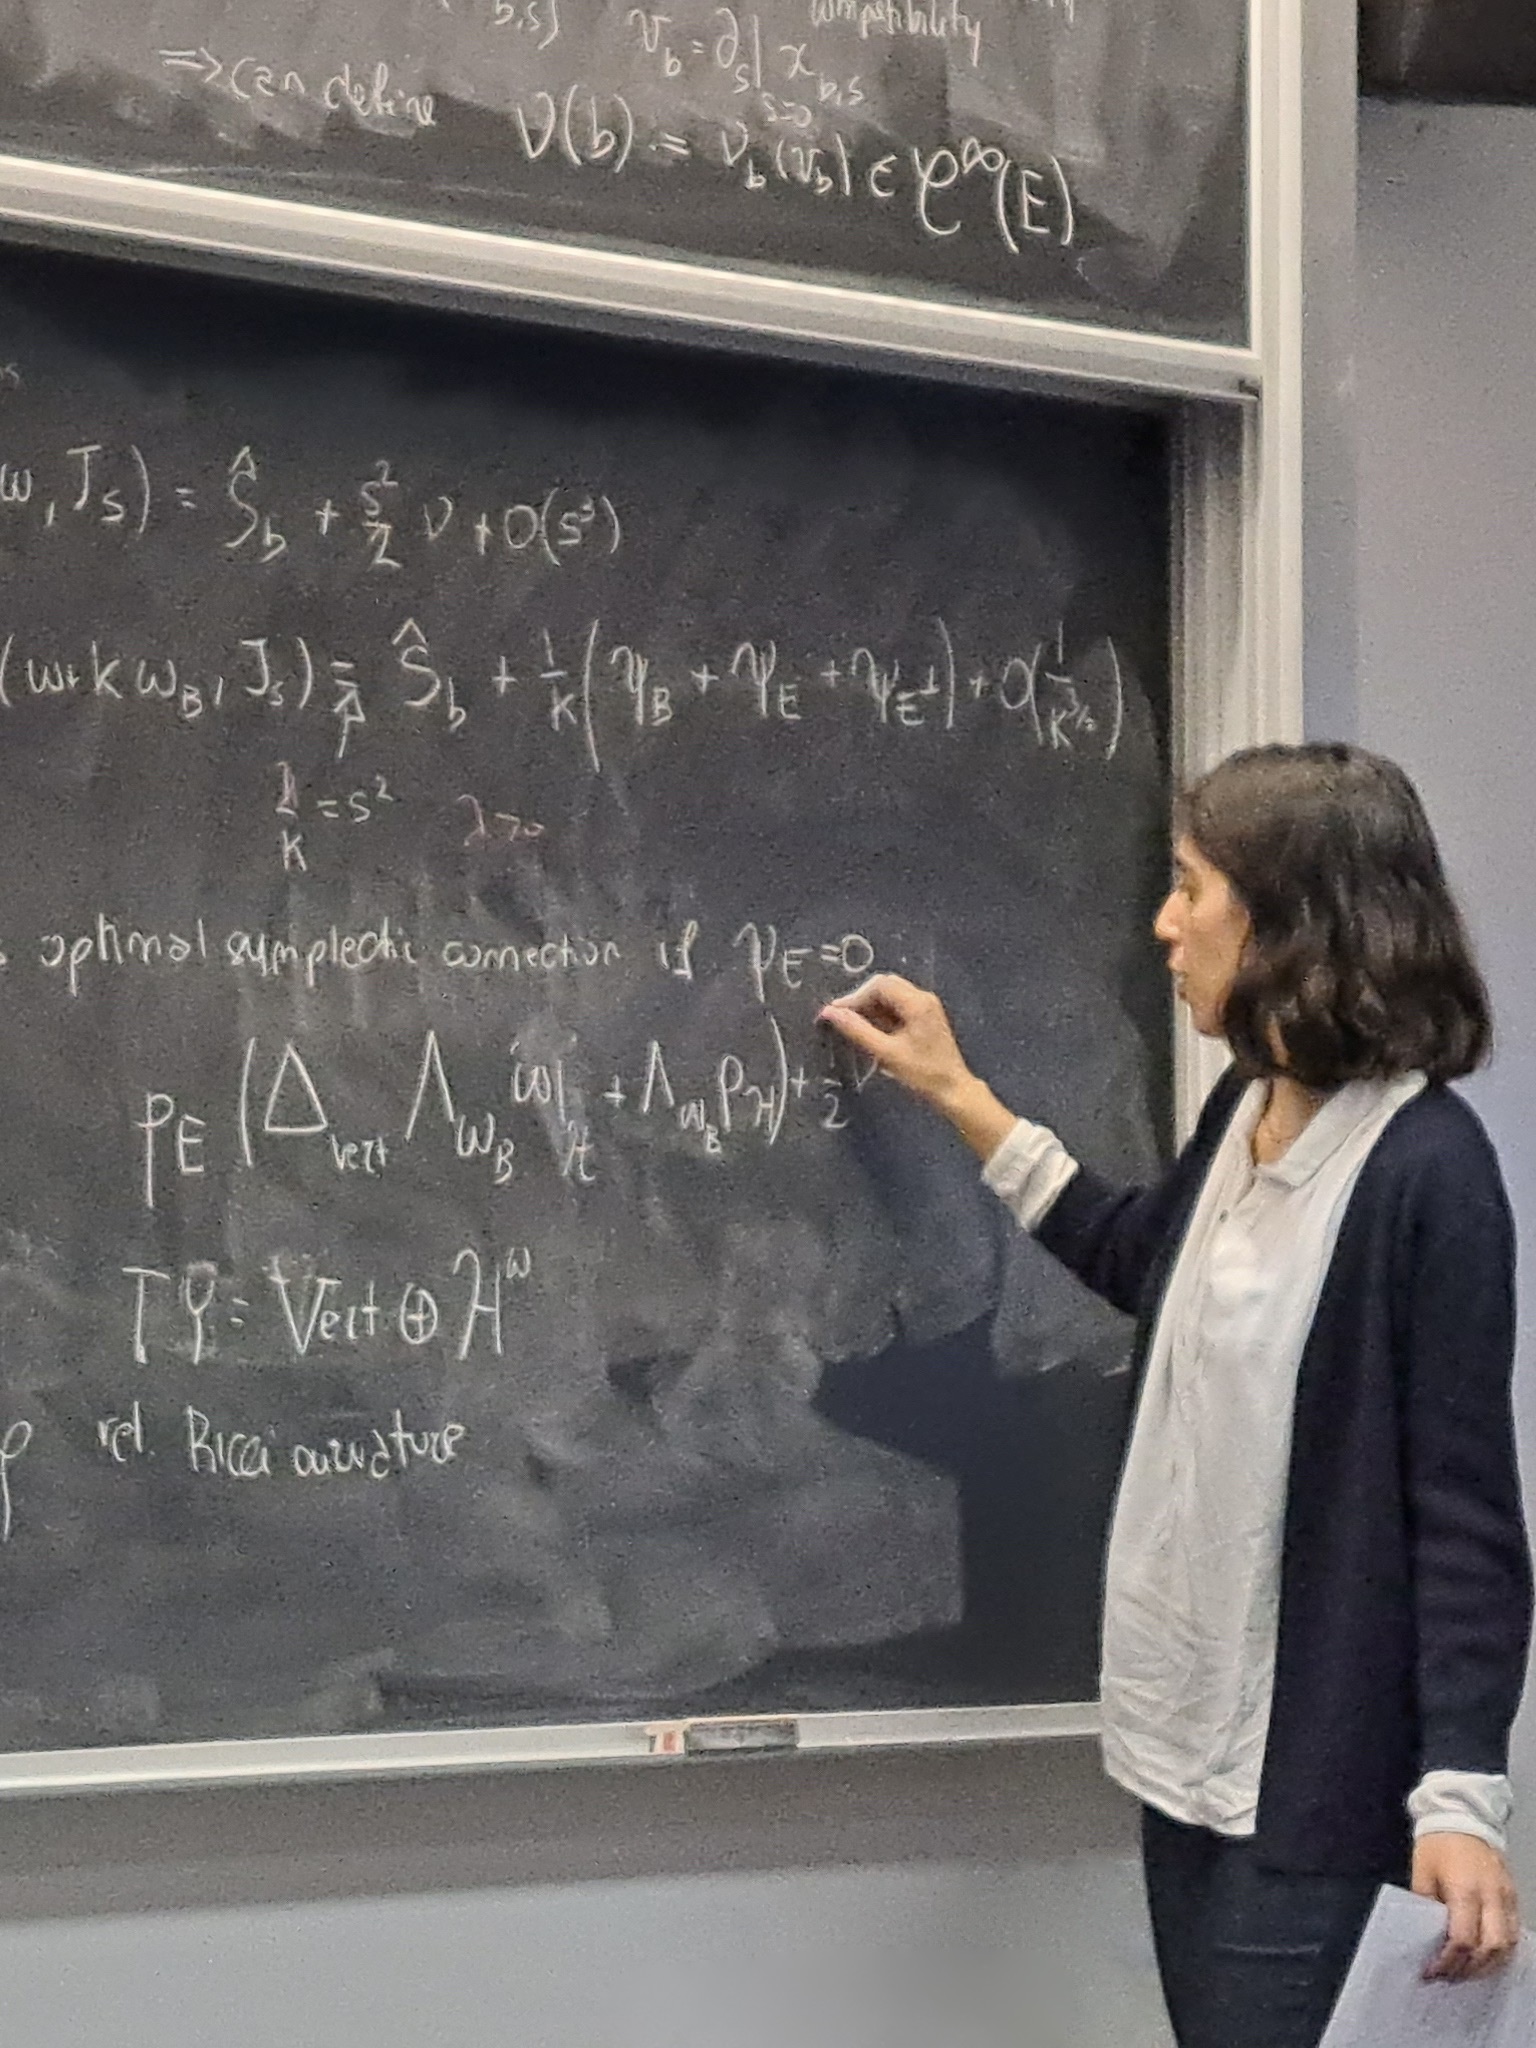 b,s} v_b = ∂_s|_{s=0} x_{b,s} compatibility
⇒ can define ν(b) = ν_b(v_b) ∈ C^∞(E)
ω, J_s) = Ŝ_b + s²/2 ν + O(s³)
(ω + k ω_B, J_s) = Ŝ_b + 1/k (ψ_B + ψ_E + ψ_E⊥) + O(1/k^{3/2})
λ/k = s² λ>0
optimal symplectic connection if ψ_E = 0
p_E (Δ_vert Λ_{ω_B} ω|_H + Λ_{ω_B} ρ_H) + 1/2 ν
TY = Vert ⊕ H^ω
ρ rel. Ricci curvature